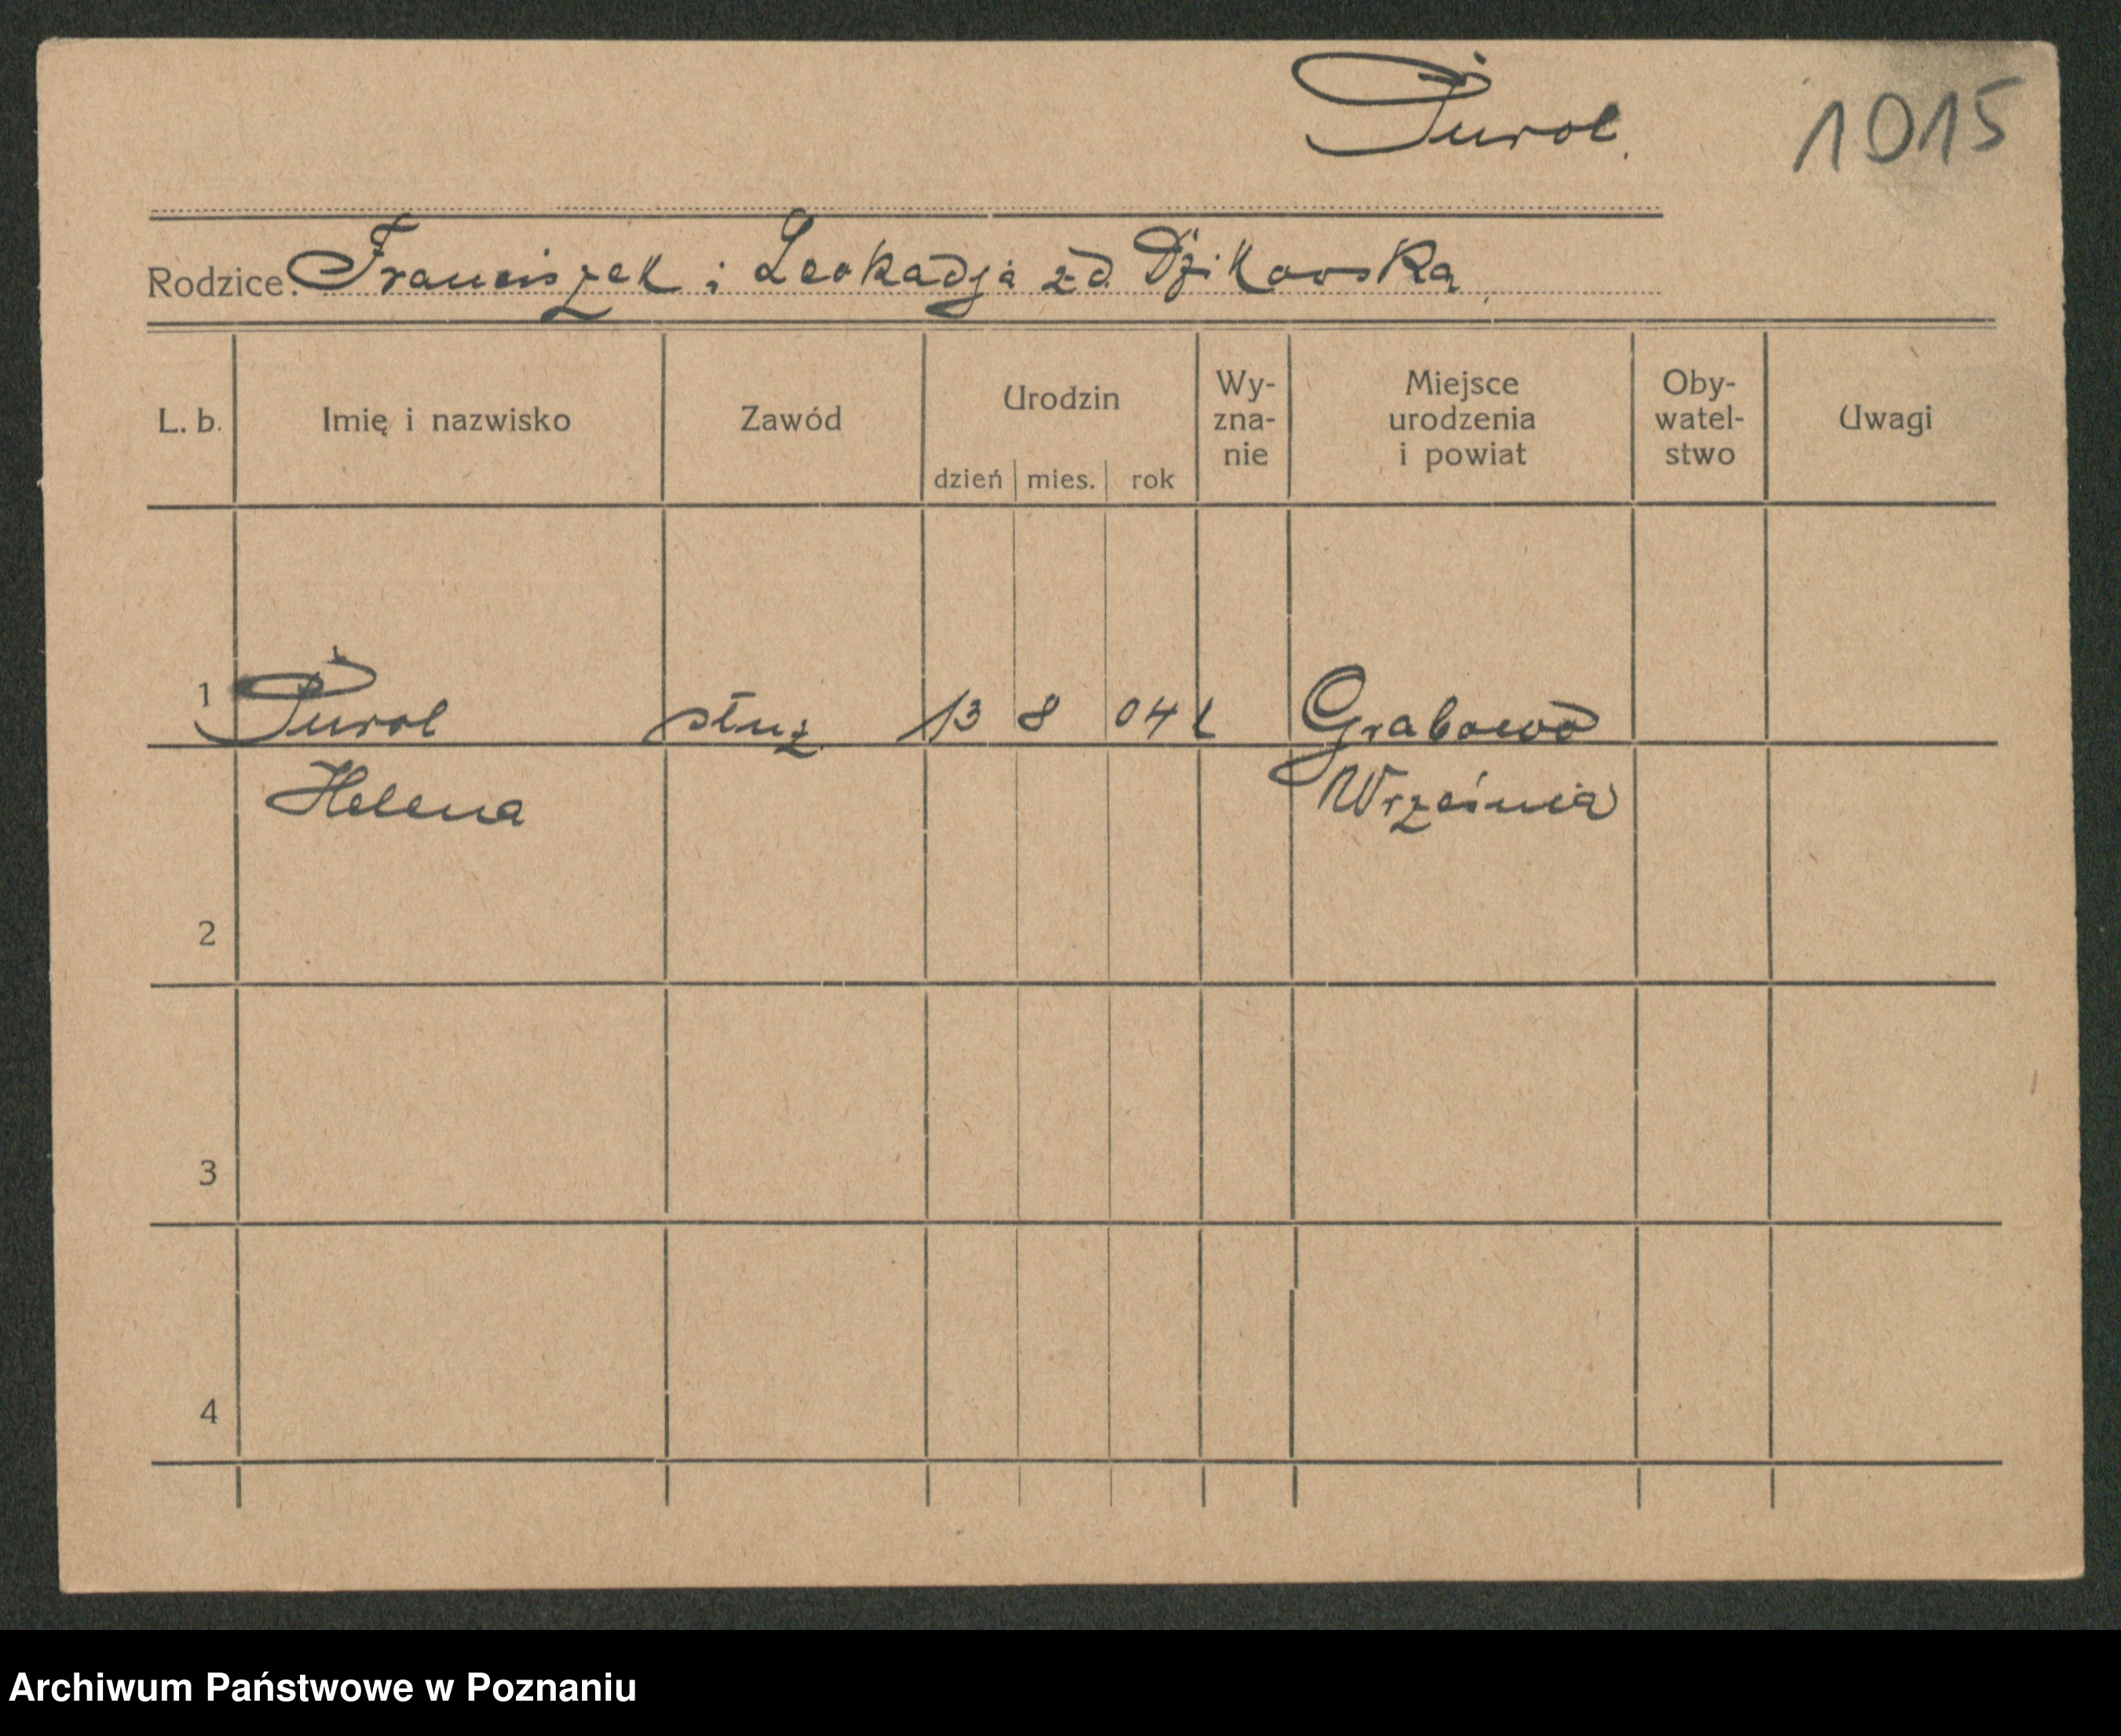 Purol.
1015
Rodzice: Franciszek i Leokadja zd. Dzikowska
L. b.
Imię i nazwisko
Zawód
Urodzin
dzień mies. rok
Wy-
zna-
nie
Miejsce
urodzenia
i powiat
Oby-
watel-
stwo
Uwagi
1 Purol służ 13 8 04 Grabowo
Helena Września
2
3
4
Archiwum Państwowe w Poznaniu